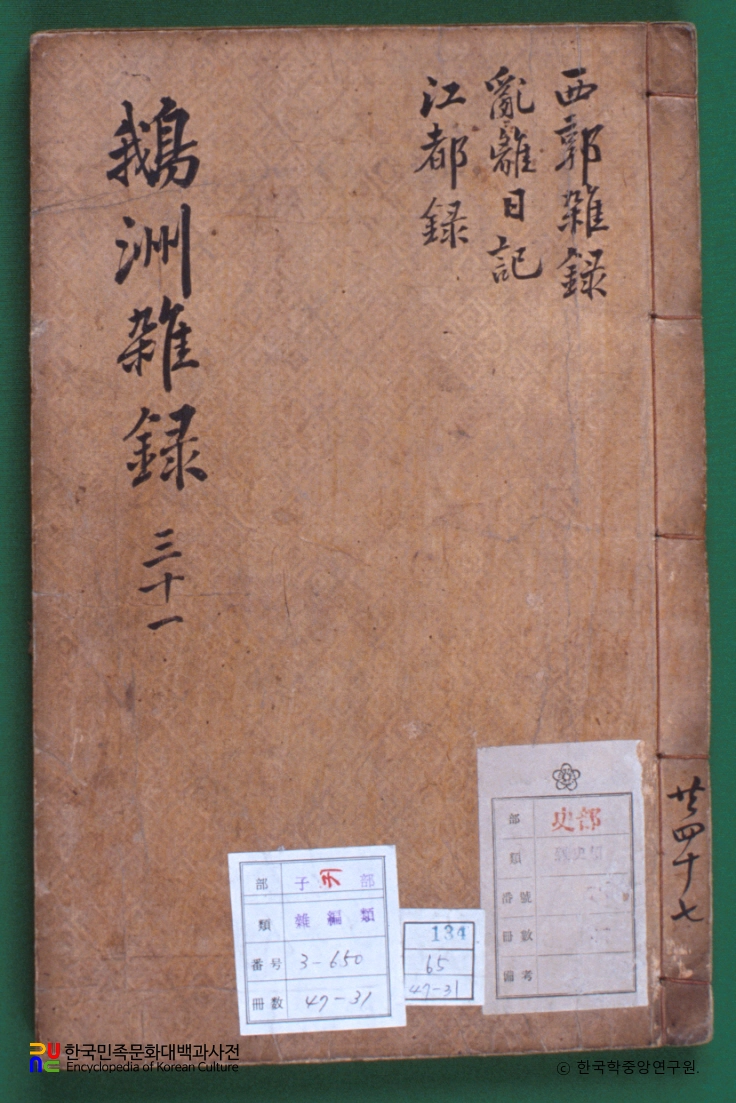 西郭雑録
亂離日記
江都録
鵝洲雑録 三十一
共四十七
部 史部
類
番號
冊數
備考
部 子 部
類 雜編類
番号 3-650
冊数 47-31
134
65
47-31
한국민족문화대백과사전
Encyclopedia of Korean Culture
© 한국학중앙연구원.